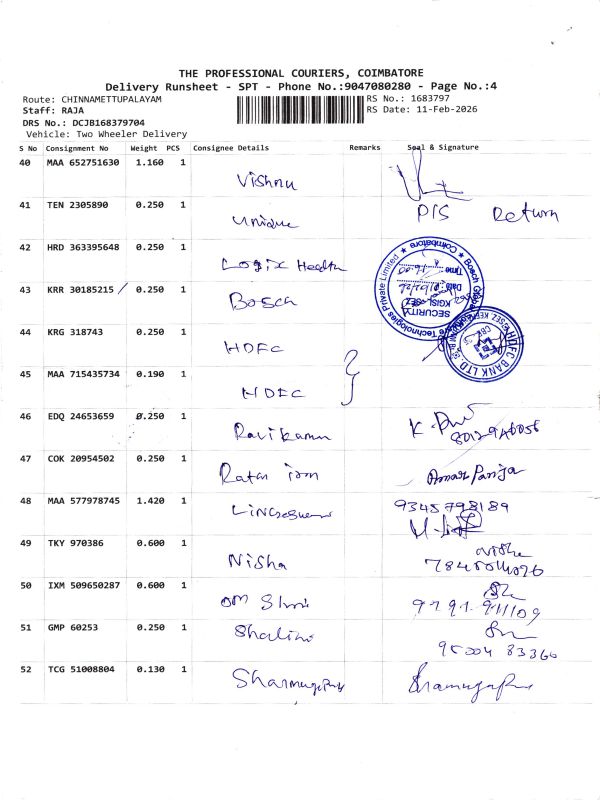 THE PROFESSIONAL COURIERS, COIMBATORE
Delivery Runsheet - SPT - Phone No.:9047080280 - Page No.:4
Route: CHINNAMETTUPALAYAM RS No.: 1683797
Staff: RAJA RS Date: 11-Feb-2026
DRS No.: DCJB168379704
Vehicle: Two Wheeler Delivery
S No Consignment No Weight PCS Consignee Details Remarks Seal & Signature
40 MAA 652751630 1.160 1 Vishnu
41 TEN 2305890 0.250 1 Unique Return
42 HRD 363395648 0.250 1 Logix Health
43 KRR 30185215 0.250 1 Bosch
44 KRG 318743 0.250 1 HDFC
45 MAA 715435734 0.190 1 HDFC
46 EDQ 24653659 0.250 1 Ravikumar
47 COK 20954502 0.250 1
48 MAA 577978745 1.420 1
9345798189
49 TKY 970386 0.600 1 Nisha Nisha
50 IXM 509650287 0.600 1
51 GMP 60253 0.250 1 Shalini
52 TCG 51008804 0.130 1
Technologies Private Limited
Coimbatore
SECURITY
KGISL SEZ
Date
Time
HDFC BANK LTD